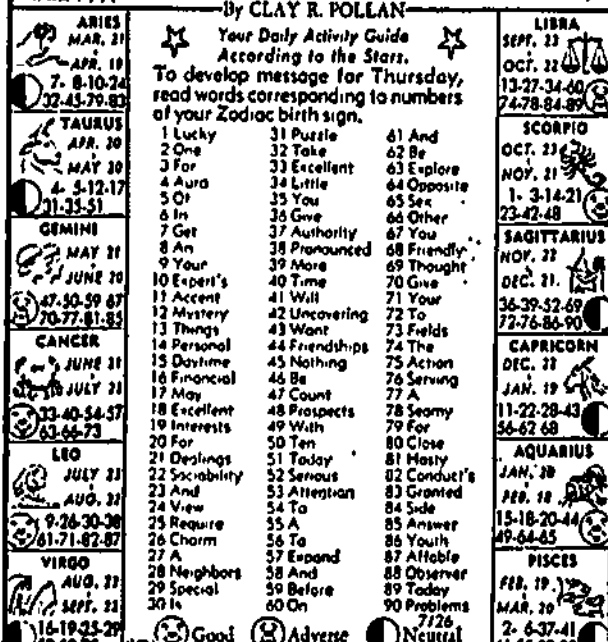 By CLAY R. POLLAN
Your Daily Activity Guide
According to the Stars.
To develop message for Thursday,
read words corresponding to numbers
of your Zodiac birth sign.
ARIES
MAR. 21
APR. 19
7- 8-10-24
32-45-79-83
TAURUS
APR. 20
MAY 20
4- 5-12-17
31-35-51
GEMINI
MAY 21
JUNE 20
47-50-59-67
70-77-81-85
CANCER
JUNE 21
JULY 21
33-40-54-57
63-66-73
LEO
JULY 23
AUG. 22
9-26-30-38
61-71-82-87
VIRGO
AUG. 23
SEPT. 22
16-19-25-29
1 Lucky
2 One
3 For
4 Aura
5 Of
6 In
7 Get
8 An
9 Your
10 Expert's
11 Accent
12 Mystery
13 Things
14 Personal
15 Daytime
16 Financial
17 May
18 Excellent
19 Interests
20 For
21 Dealings
22 Sociability
23 And
24 View
25 Require
26 Charm
27 A
28 Neighbors
29 Special
30 Is
31 Puzzle
32 Take
33 Excellent
34 Little
35 You
36 Give
37 Authority
38 Pronounced
39 More
40 Time
41 Will
42 Uncovering
43 Want
44 Friendships
45 Nothing
46 Be
47 Count
48 Prospects
49 With
50 Ten
51 Today
52 Serious
53 Attention
54 To
55 A
56 To
57 Expand
58 And
59 Before
60 On
61 And
62 Be
63 Explore
64 Opposite
65 Sex
66 Other
67 You
68 Friendly
69 Thought
70 Give
71 Your
72 To
73 Fields
74 The
75 Action
76 Serving
77 A
78 Seamy
79 For
80 Close
81 Hasty
82 Conduct's
83 Granted
84 Side
85 Answer
86 Youth
87 Affable
88 Observer
89 Today
90 Problems
7/26
Good Adverse Neutral
LIBRA
SEPT. 23
OCT. 22
13-27-34-60
74-78-84-89
SCORPIO
OCT. 23
NOV. 21
1- 3-14-21
23-42-48
SAGITTARIUS
NOV. 22
DEC. 21.
36-39-52-69
72-76-86-90
CAPRICORN
DEC. 22
JAN. 19
11-22-28-43
56-62-68
AQUARIUS
JAN. 20
FEB. 18
15-18-20-44
49-64-65
PISCES
FEB. 19
MAR. 20
2- 6-37-41